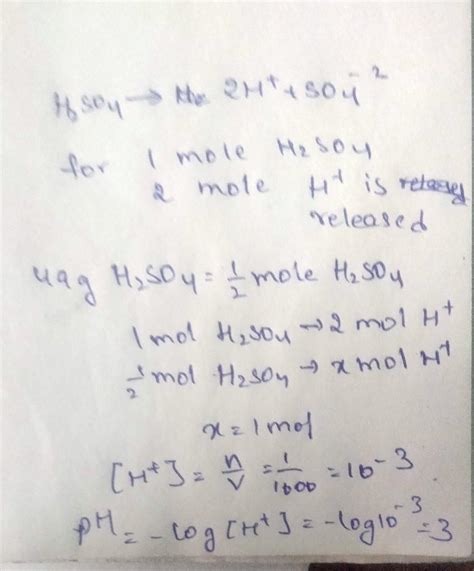 H₂SO₄ → 2H⁺ + SO₄⁻²
for 1 mole H₂SO₄
2 mole H⁺ is
released
49g H₂SO₄ = 1/2 mole H₂SO₄
1 mol H₂SO₄ → 2 mol H⁺
1/2 mol H₂SO₄ → x mol H⁺
x = 1 mol
[H⁺] = n/V = 1/1000 = 10⁻³
pH = -log [H⁺] = -log10⁻³ = 3